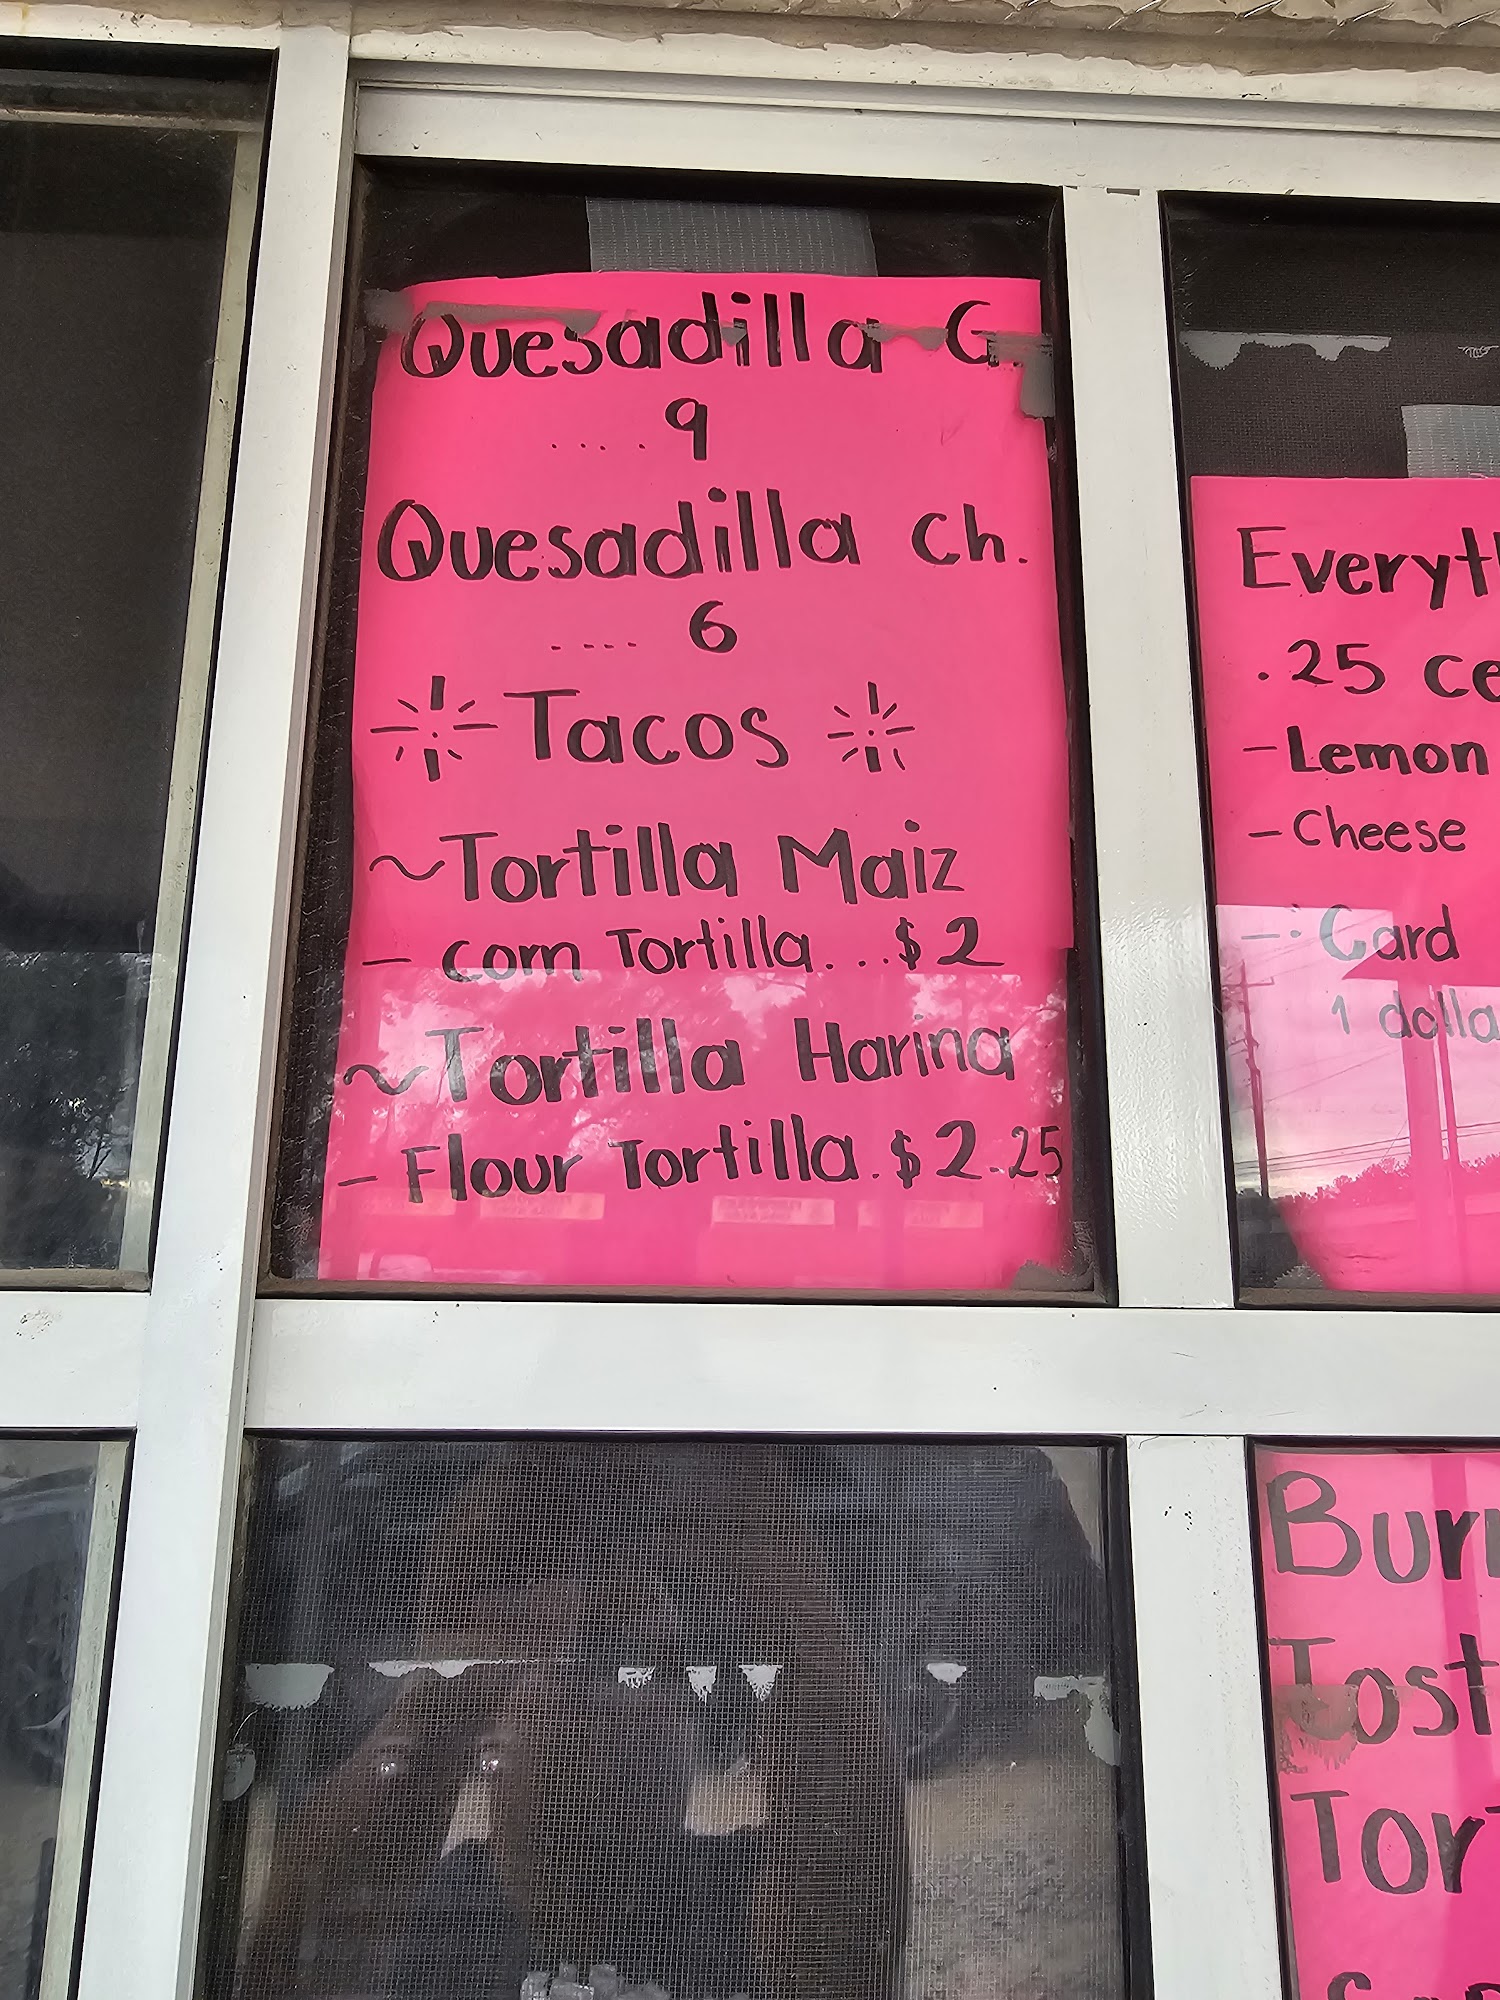 Quesadilla G.
.... 9
Quesadilla Ch.
.... 6
Tacos
~Tortilla Maiz
- Corn Tortilla...$2
~Tortilla Harina
- Flour Tortilla.$2.25
.25
-Lemon
-Cheese
-Card
1